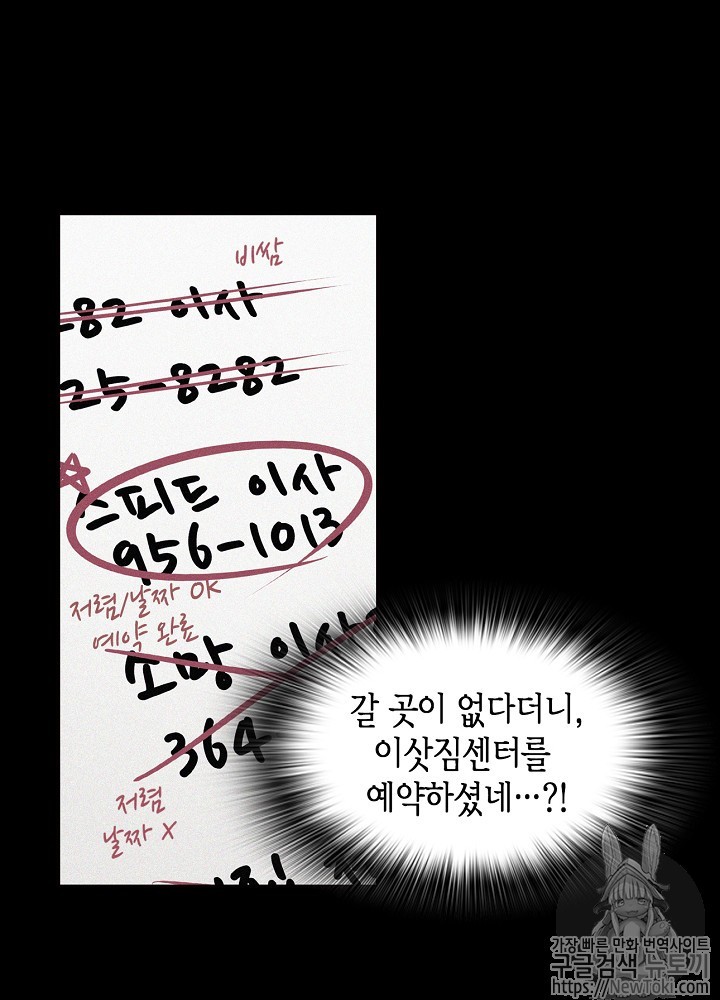 비쌈
-82 이사
25-8282
스피드 이사
956-1013
저렴/날짜 OK
예약 완료
소망 이사
364
저렴
날짜 X
갈 곳이 없다더니,
이삿짐센터를
예약하셨네…?!
가장 빠른 만화 번역사이트
구글검색 뉴토끼
https://NewToki.com